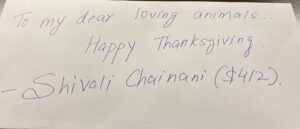 To my dear loving animals...
Happy Thanksgiving.
- Shivali Chainani ($412).